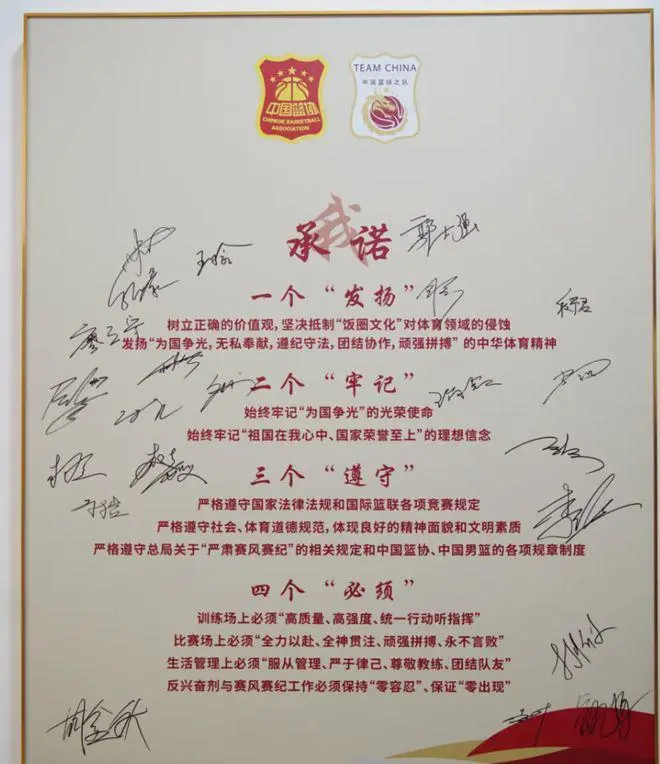 中国篮协
CHINESE BASKETBALL
ASSOCIATION
TEAM CHINA
中国篮球之队
我
承诺
一个“发扬”
树立正确的价值观，坚决抵制“饭圈文化”对体育领域的侵蚀
发扬“为国争光，无私奉献，遵纪守法，团结协作，顽强拼搏”的中华体育精神
二个“牢记”
始终牢记“为国争光”的光荣使命
始终牢记“祖国在我心中、国家荣誉至上”的理想信念
三个“遵守”
严格遵守国家法律法规和国际篮联各项竞赛规定
严格遵守社会、体育道德规范，体现良好的精神面貌和文明素质
严格遵守总局关于“严肃赛风赛纪”的相关规定和中国篮协、中国男篮的各项规章制度
四个“必须”
训练场上必须“高质量、高强度、统一行动听指挥”
比赛场上必须“全力以赴、全神贯注、顽强拼搏、永不言败”
生活管理上必须“服从管理、严于律己、尊敬教练、团结队友”
反兴奋剂与赛风赛纪工作必须保持“零容忍”、保证“零出现”